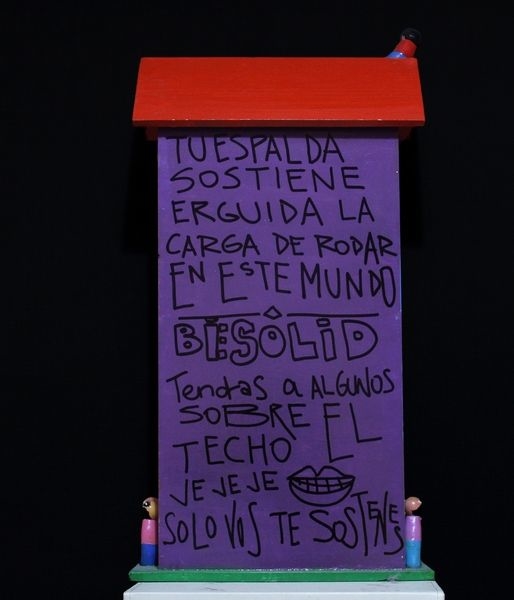 TU ESPALDA
SOSTIENE
ERGUIDA LA
CARGA DE RODAR
EN ESTE MUNDO
BESOLID
Tendras a ALGUNOS
SOBRE EL
TECHO
JE JE JE
SOLO VOS TE SOSTENES